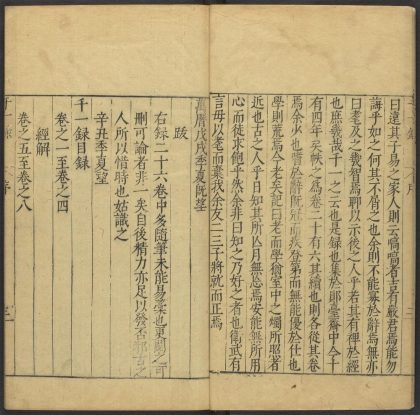 曰遠其子易之家人則云嗃嗃者吉有嚴君焉能勿
誨乎如之何其不屑之也余則不能蒙於辭焉無亦
曰耄及之幾智焉聊以示後之人乎若其有裨於經
也庶幾哉千一之云也是錄也集於郎臺齋中今十
有四年矣帙之爲卷二十有六其續也則各從其卷
焉余少也嘗於辭既冠而疾登第而無能優於仕也
學則荒焉今老矣記曰老而學猶室中之燭所照者
近也古之人乎日知其所亡月無忘焉安能無所用
心而徒來飽乎然余非曰知之乃好之者也衛武有
言毋以老耄而棄我余友二三子將就而正焉
萬曆戊戌季夏既望
跋
右錄二十六卷中多隨筆未能易稾也更閱之可
刪可論者非一矣自後精力亦足以發否耶古之
人所以惜時也姑識之
辛丑季夏望
千一錄目錄
卷之一至卷之四
經解
卷之五至卷之八